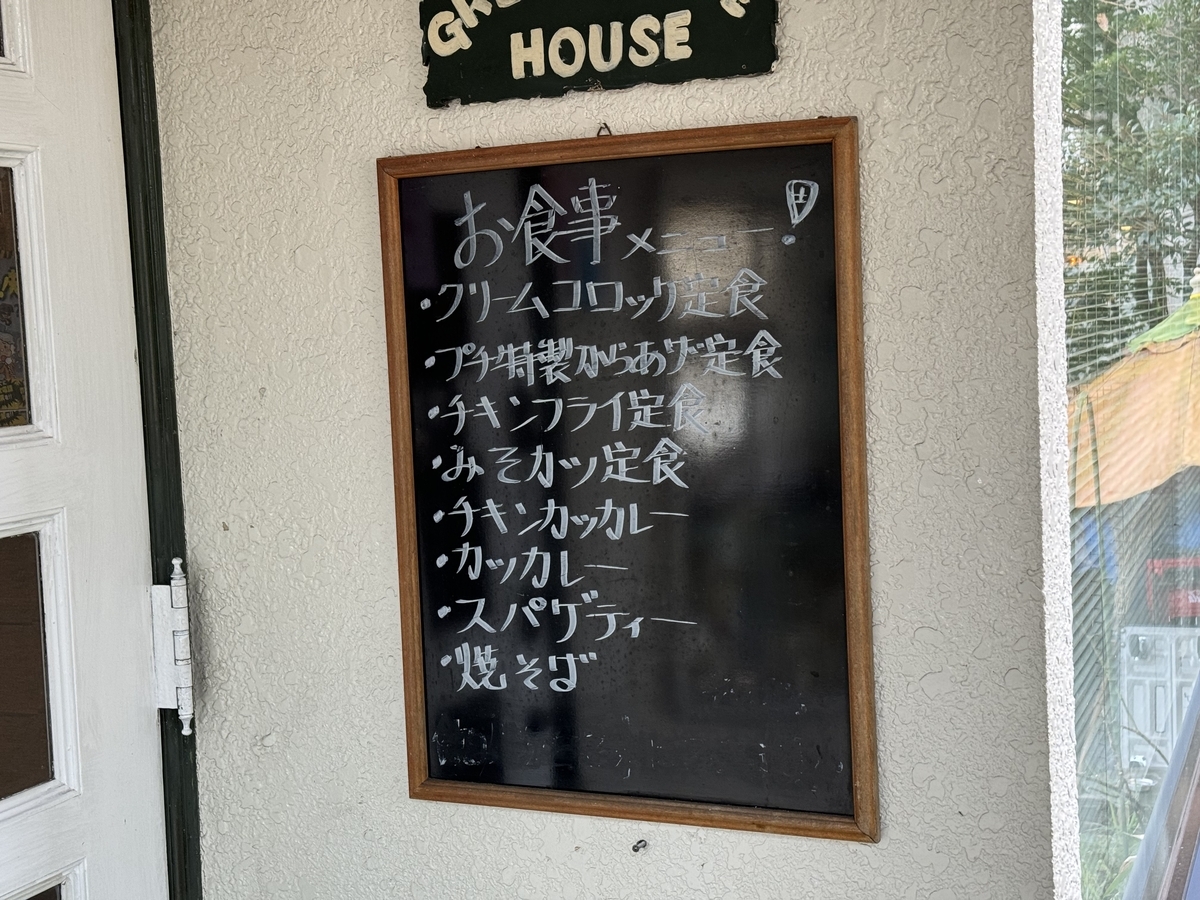 HOUSE
お食事メニュー!
・クリームコロッケ定食
・プチ特製からあげ定食
・チキンフライ定食
・みそカツ定食
・チキンカツカレー
・カツカレー
・スパゲティー
・焼そば